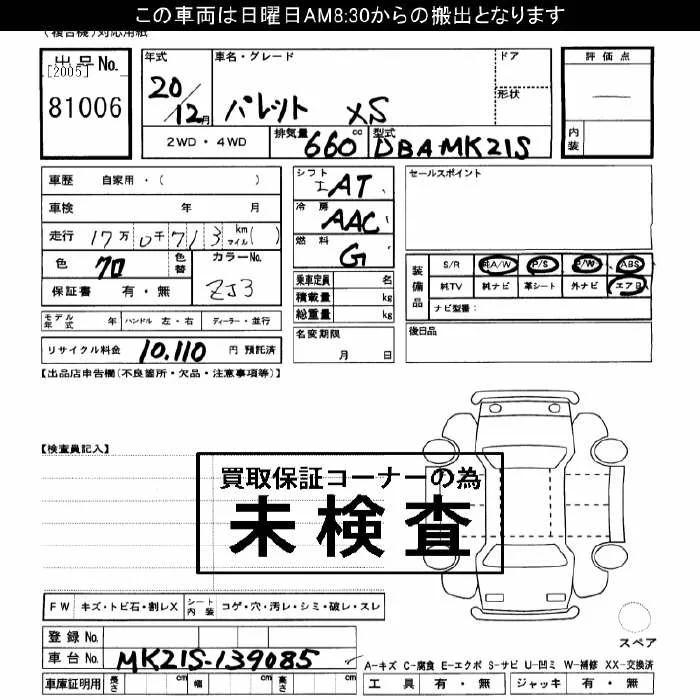 この車両は日曜日AM8:30からの搬出となります
(複合機)対応用紙
出品No.
[2005]
81006
年式
20/12月
車名・グレード
パレット XS
ドア
形状
評価点
内装
2WD・4WD
排気量 660 cc
型式 DBAMK21S
車歴 自家用・( )
車検 年 月
走行 17万0千713 km マイル( )
色 クロ
色替
カラーNo.
ZJ3
保証書 有・無
モデル年式 年 ハンドル 左・右 ディーラー・並行
リサイクル料金 10.110 円 預託済
シフト AT
冷房 AAC
燃料 G
乗車定員 名
積載量 kg
総重量 kg
名変期限
月 日
セールスポイント
装備品
S/R 純A/W P/S P/W ABS
純TV 純ナビ 革シート 外ナビ エアB
ナビ型番:
後日品
【出品店申告欄(不良箇所・欠品・注意事項等)】
【検査員記入】
買取保証コーナーの為
未検査
FW キズ・トビ石・割レX
シート内装 コゲ・穴・汚レ・シミ・破レ・スレ
登録No.
車台No. MK21S-139085
車庫証明用 長さ cm 幅 cm 高さ cm
スペア
A-キズ C-腐食 E-エクボ S-サビ U-凹ミ W-補修 XX-交換済
工具 有・無 ジャッキ 有・無